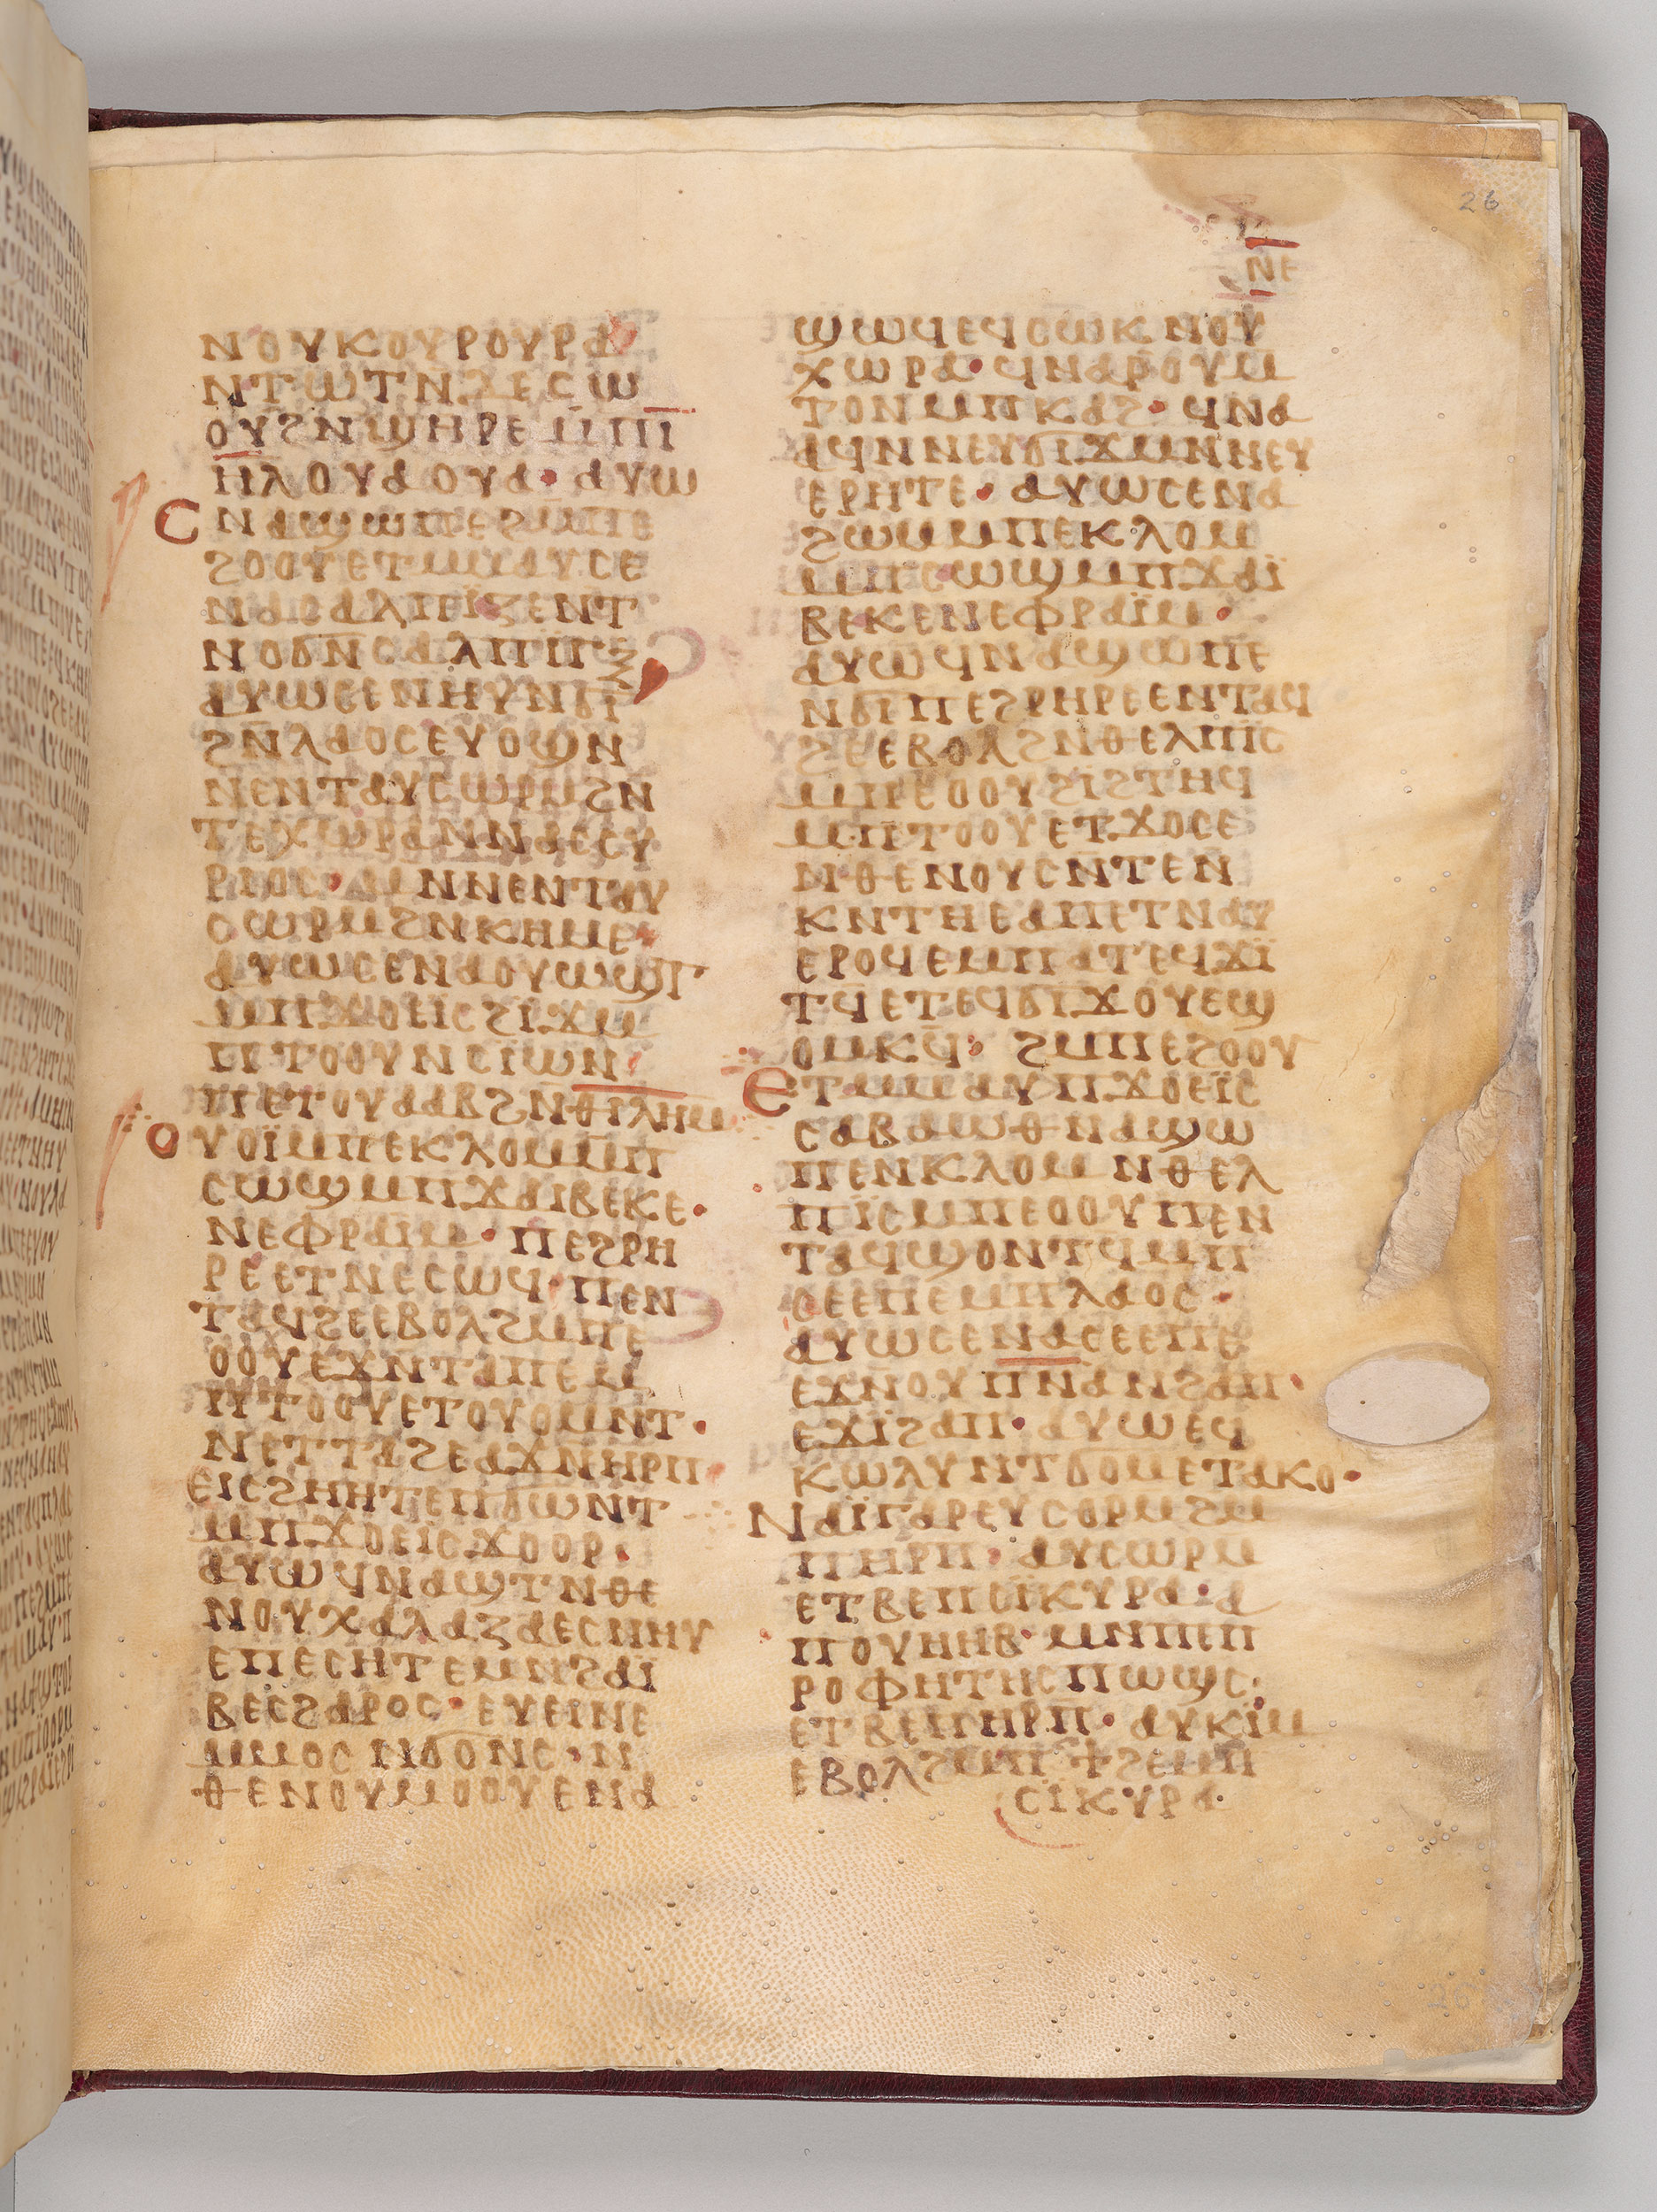 26
ⲛⲉ
ⲛⲟⲩⲕⲟⲩⲣⲟⲩⲣⲁ
ⲛⲧⲱⲧⲛ̄ⲇⲉⲥⲱ
ⲟⲩϩⲛ̄ϣⲏⲣⲉⲙⲡⲓ̄
ⲏ̄ⲗⲟⲩⲁⲟⲩⲁ· ⲁⲩⲱ
ⲥⲛⲁϣⲱⲡⲉϩⲙⲡⲉ
ϩⲟⲟⲩⲉⲧⲙⲙⲁⲩⲥⲉ
ⲛⲁⲥⲁⲗⲡⲓⲍⲉⲛⲧ
ⲛⲟϭⲛⲥⲁⲗⲡⲓⲅⲝ
ⲁⲩⲱⲥⲉⲛⲏⲩⲛϭⲓ
ϩⲛ̄ⲗⲁⲟⲥⲉⲩⲟϣⲛ
ⲛⲉⲛⲧⲁⲩⲥⲱⲣⲙϩⲛ
ⲧⲉⲭⲱⲣⲁⲛⲛⲁⲥⲥⲩ
ⲣⲓⲟⲥ· ⲙⲛⲛⲉⲛⲧⲁⲩ
ⲥⲱⲣⲙϩⲛⲕⲏⲙⲉ·
ⲁⲩⲱⲥⲉⲛⲁⲟⲩⲱϣⲧ
ⲙⲡϫⲟⲉⲓⲥϩⲓϫⲙ
ⲡⲧⲟⲟⲩⲛⲥⲓⲱⲛ
ⲡⲉⲧⲟⲩⲁⲁⲃϩⲛ̄ⲑⲓⲗⲏⲙ
ⲟⲩⲟⲓ̈ⲙⲡⲉⲕⲗⲟⲙⲙⲡ
ⲥⲱϣⲙⲡϫⲁⲓⲃⲉⲕⲉ·
ⲛⲉⲫⲣⲁⲓ̈ⲙ· ⲡⲉϩⲣⲏ
ⲣⲉⲉⲧⲛⲉⲥⲱϥ ⲡⲉⲛ
ⲧⲁϥϩⲉⲉⲃⲟⲗϩⲙⲡⲉ
ⲟⲟⲩⲉϫⲛⲧⲁⲡⲉⲙ
ⲡⲧⲟⲟⲩⲉⲧⲟⲩⲟⲙⲛⲧ·
ⲛⲉⲧⲧⲁϩⲉⲁϫⲛⲏⲣⲡ
ⲉⲓⲥϩⲏⲏⲧⲉⲡϭⲱⲛⲧ
ⲙⲡϫⲟⲉⲓⲥϫⲟⲟⲣ·
ⲁⲩⲱϥⲛⲁϣⲧⲛⲑⲉ
ⲛⲟⲩⲭⲁⲗⲁⲍⲁⲉⲥⲛⲏⲩ
ⲉⲡⲉⲥⲏⲧⲉⲙⲛϩⲁⲓ
ⲃⲉⲥϩⲁⲣⲟⲥ· ⲉⲩⲉⲓⲛⲉ
ⲙⲙⲟⲥⲛϭⲟⲛⲥ· ⲛ
ⲑⲉⲛⲟⲩⲙⲟⲟⲩⲉⲛⲁ
ϣⲱϥⲉϥⲥⲱⲕ ⲛⲟⲩ
ⲭⲱⲣⲁ· ϥⲛⲁⲣⲟⲩⲙ
ⲧⲟⲛⲙⲡⲕⲁϩ· ϥⲛⲁ
ⲁϥⲛⲛⲉⲩϭⲓϫⲙⲛⲛⲉⲩ
ⲉⲣⲏⲧⲉ· ⲁⲩⲱⲥⲉⲛⲁ
ϩⲱⲙⲙⲡⲉⲕⲗⲟⲙ
ⲙⲡⲥⲱϣⲙⲡϫⲁⲓ̈
ⲃⲉⲕⲉⲛⲉⲫⲣⲁⲓ̈ⲙ·
ⲁⲩⲱϥⲛⲁϣⲱⲡⲉ
ⲛϭⲓⲡⲉϩⲣⲏⲣⲉⲉⲛⲧⲁϥ
ϩⲉⲉⲃⲟⲗϩⲛⲑⲉⲗⲡⲓ̈ⲥ
ⲙⲡⲉⲟⲟⲩϩⲓϩⲧⲏϥ
ⲙⲡⲧⲟⲟⲩⲉⲧϫⲟⲥⲉ
ⲛⲑⲉⲛⲟⲩⲥⲛⲧⲉⲛ
ⲕⲛⲧⲏⲉⲁⲡⲉⲧⲛⲁⲩ
ⲉⲣⲟϥⲉⲙⲡⲁⲧⲉϥϫⲓ̈
ⲧϥⲉⲧⲉϥϭⲓϫⲟⲩⲉϣ
ⲟⲙⲕϥ· ϩⲙⲡⲉϩⲟⲟⲩ
ⲉⲧⲙⲙⲁⲩⲡϫⲟⲉⲓ̈ⲥ
ⲥⲁⲃⲁⲱⲑⲛⲁϣⲱ
ⲡⲉⲛⲕⲗⲟⲙⲛⲑⲉⲗ
ⲡⲓ̈ⲥⲙⲡⲉⲟⲟⲩⲡⲉⲛ
ⲧⲁϥϣⲟⲛⲧϥⲙⲡ
ⲥⲉⲉⲡⲉⲙⲡⲗⲁⲟⲥ·
ⲁⲩⲱⲥⲉⲛⲁⲥⲉⲉⲡⲉ
ⲉϫⲛⲟⲩⲡⲛ̄ⲁ̄ⲛϩⲁⲡ·
ⲉϫⲓ̈ϩⲁⲡ· ⲁⲩⲱⲉϥ
ⲕⲱⲗⲩⲛⲧϭⲟⲙⲉⲧⲁⲕⲟ·
ⲛⲁⲓ̈ⲅⲁⲣⲉⲩⲥⲟⲣⲙϩⲙ
ⲡⲏⲣⲡ· ⲁⲩⲥⲱⲣⲙ
ⲉⲧⲃⲉⲡⲥⲓ̈ⲕⲩⲣⲁ· ⲁ
ⲡⲟⲩⲏⲏⲃ· ⲙⲛⲡⲉⲡ
ⲣⲟⲫⲏⲧⲏⲥⲡⲱϣⲥ
ⲉⲧⲃⲉⲡⲏⲣⲡ· ⲁⲩⲕⲓ̈ⲙ
ⲉⲃⲟⲗϩⲙⲡϯϩⲉⲙⲡ
ⲥⲓ̈ⲕⲩⲣⲁ·